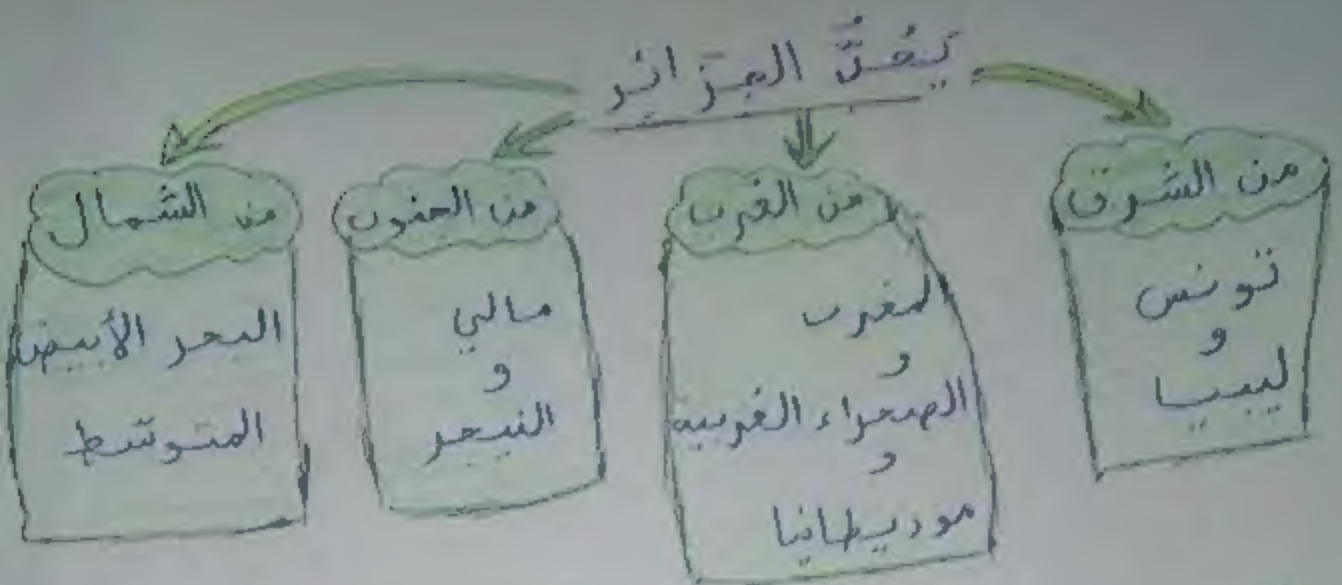 يَحُدُّ الجزائر
من الشرق
تونس
و
ليبيا
من الغرب
المغرب
و
الصحراء الغربية
و
موريطانيا
من الجنوب
مالي
و
النيجر
من الشمال
البحر الأبيض
المتوسط